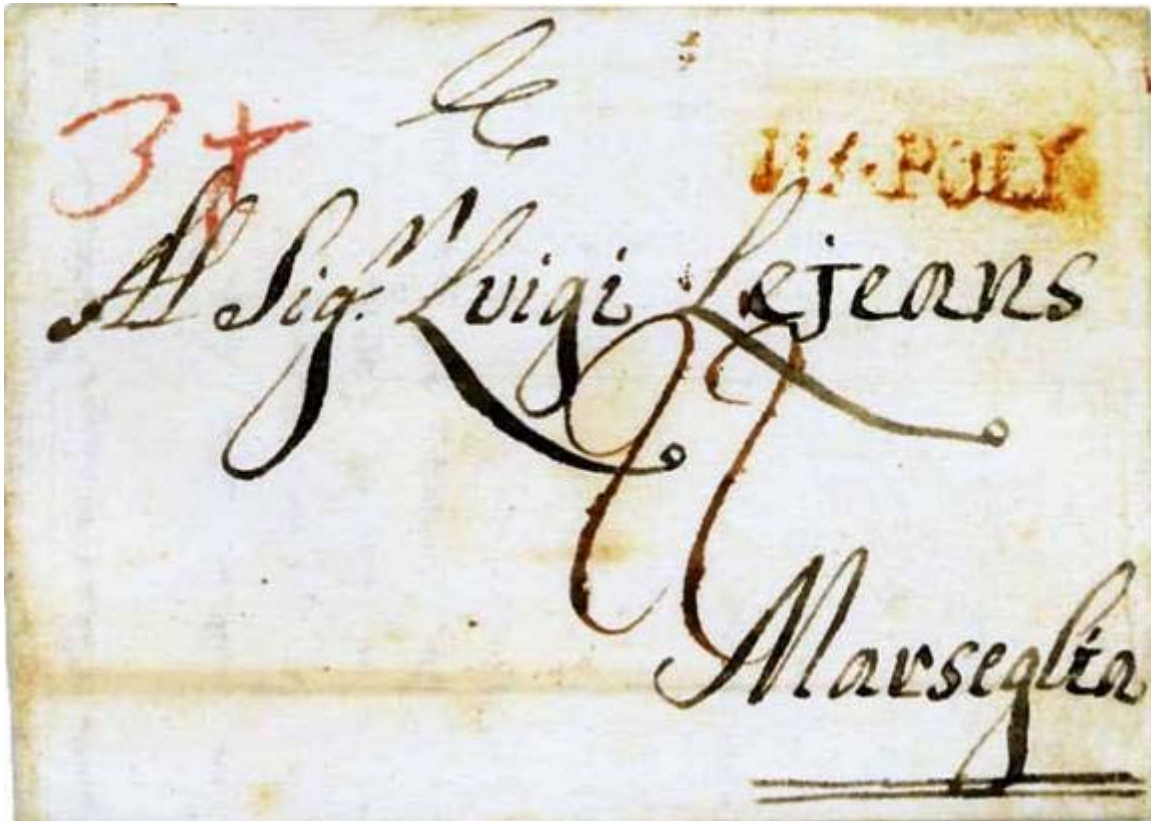 3
NAPOLY
Al Sigr. Luigi Lejeans
22
Marseglia